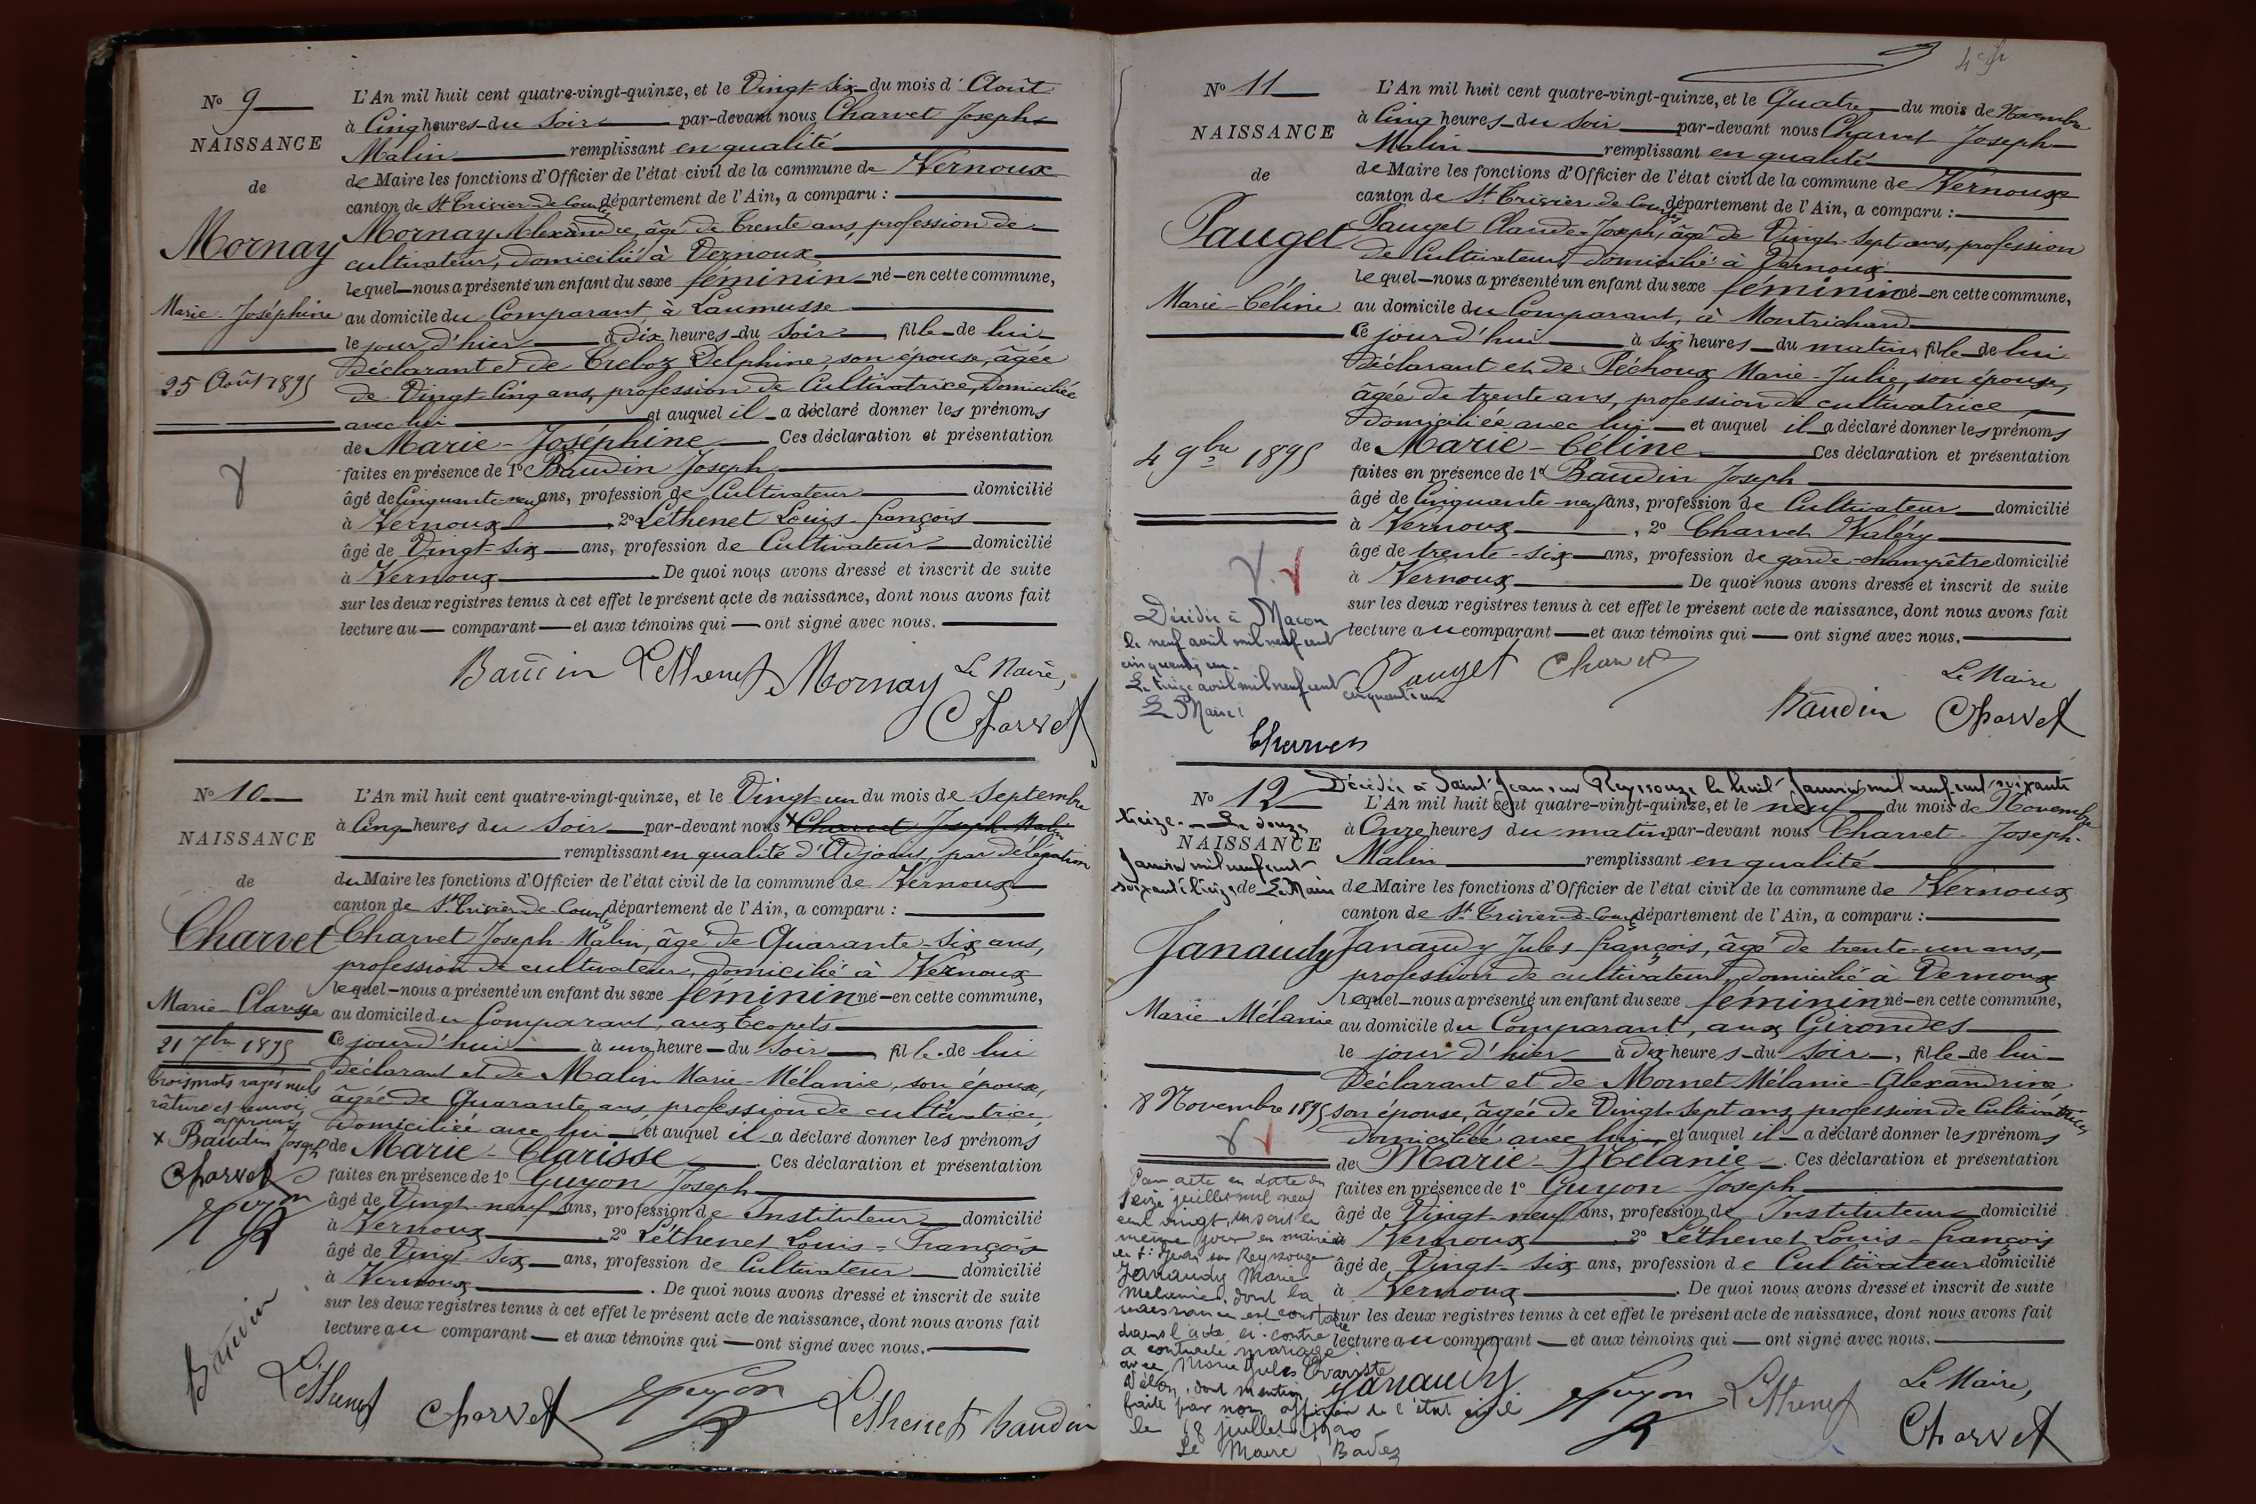 No 9
NAISSANCE
de
Mornay
Marie-Joséphine
25 Août 1895
L'An mil huit cent quatre-vingt-quinze, et le Vingt-six du mois d'Août
à Cinq heures du Soir par-devant nous Charvet Joseph
Malin remplissant en qualité
de Maire les fonctions d'Officier de l'état civil de la commune de Vernoux
canton de St Trivier de Courtes département de l'Ain, a comparu :
Mornay Alexandre, âgé de trente ans, profession de
cultivateur, domicilié à Vernoux
lequel nous a présenté un enfant du sexe féminin né en cette commune,
au domicile du Comparant à Laumusse
le jour d'hier à dix heures du Soir, fille de lui
Déclarant et de Creboz Delphine, son épouse, âgée
de Vingt-Cinq ans, profession de Cultivatrice, domiciliée
avec lui et auquel il a déclaré donner les prénoms
de Marie-Joséphine Ces déclaration et présentation
faites en présence de 1° Baudin Joseph
âgé de Cinquante neuf ans, profession de Cultivateur domicilié
à Vernoux 2° Léthenet Louis-françois
âgé de Vingt-six ans, profession de Cultivateur domicilié
à Vernoux De quoi nous avons dressé et inscrit de suite
sur les deux registres tenus à cet effet le présent acte de naissance, dont nous avons fait
lecture au comparant et aux témoins qui ont signé avec nous.
Baudin Léthenet Mornay Le Maire,
Charvet
No 10
NAISSANCE
de
Charvet
Marie-Clarisse
21 7bre 1895
trois mots rayés nuls
râture et renvoi
approuvés
x Baudin Joseph
Charvet
Guyon
L'An mil huit cent quatre-vingt-quinze, et le Vingt-un du mois de Septembre
à Cinq heures du Soir par-devant nous x Charvet Joseph Malin
remplissant en qualité d'Adjoint, par délégation
du Maire les fonctions d'Officier de l'état civil de la commune de Vernoux
canton de St Trivier-de-Courtes département de l'Ain, a comparu :
Charvet Joseph-Malin, âgé de Quarante-six ans,
profession de cultivateur, domicilié à Vernoux
lequel nous a présenté un enfant du sexe féminin né en cette commune,
au domicile du Comparant, aux Ecopets
Ce jourd'hui à une heure du Soir, fille de lui
Déclarant et de Malin Marie-Mélanie, son épouse,
âgée de Quarante ans, profession de cultivatrice,
domiciliée avec lui et auquel il a déclaré donner les prénoms
de Marie-Clarisse Ces déclaration et présentation
faites en présence de 1° Guyon Joseph
âgé de Vingt-neuf ans, profession de Instituteur domicilié
à Vernoux 2° Léthenet Louis-François
âgé de Vingt-six ans, profession de Cultivateur domicilié
à Vernoux. De quoi nous avons dressé et inscrit de suite
sur les deux registres tenus à cet effet le présent acte de naissance, dont nous avons fait
lecture au comparant et aux témoins qui ont signé avec nous.
Baudin
Léthenet Charvet Guyon Léthenet Baudin
No 11
NAISSANCE
de
Pauget
Marie-Céline
4 9bre 1895
Décédée à Macon
le neuf avril mil neuf cent
cinquante un.
Le treize avril mil neuf cent cinquante un
Le Maire:
Charvet
L'An mil huit cent quatre-vingt-quinze, et le Quatre du mois de Novembre
à Cinq heures du Soir par-devant nous Charvet Joseph
Malin remplissant en qualité
de Maire les fonctions d'Officier de l'état civil de la commune de Vernoux
canton de St Trivier de Courtes département de l'Ain, a comparu :
Pauget Claude-Joseph, âgé de Vingt-sept ans, profession
de Cultivateur, domicilié à Vernoux
lequel nous a présenté un enfant du sexe féminin né en cette commune,
au domicile du Comparant, à Montrichard
Ce jourd'hui à six heures du matin, fille de lui
Déclarant et de Péchoux Marie-Julie, son épouse,
âgée de trente ans, profession de cultivatrice,
domiciliée avec lui et auquel il a déclaré donner les prénoms
de Marie-Céline Ces déclaration et présentation
faites en présence de 1° Baudin Joseph
âgé de Cinquante-neuf ans, profession de Cultivateur domicilié
à Vernoux, 2° Charvet Valéry
âgé de trente-six ans, profession de garde-champêtre domicilié
à Vernoux De quoi nous avons dressé et inscrit de suite
sur les deux registres tenus à cet effet le présent acte de naissance, dont nous avons fait
lecture au comparant et aux témoins qui ont signé avec nous.
Pauget Charvet Le Maire
Baudin Charvet
Décédée à Saint Jean sur Reyssouze le huit Janvier mil neuf cent soixante
treize. Le douze
Janvier mil neuf cent
soixante treize Le Maire
No 12
NAISSANCE
de
Janaudy
Marie Mélanie
8 Novembre 1895
Par acte en date du
seize juillet mil neuf
cent vingt, inscrit le
même jour en mairie
de St Jean sur Reyssouze
Janaudy Marie
Mélanie, dont la
naissance est constatée
dans l'acte ci-contre
a contracté mariage
avec Marie Jules Evariste
Vélon, dont mention
faite par nous officier de l'état civil
le 18 juillet 1920
Le Maire,
L'An mil huit cent quatre-vingt-quinze, et le neuf du mois de Novembre
à Onze heures du matin par-devant nous Charvet Joseph-
Malin remplissant en qualité
de Maire les fonctions d'Officier de l'état civil de la commune de Vernoux
canton de St Trivier-de-Courtes département de l'Ain, a comparu :
Janaudy Jules françois, âgé de trente-un ans,
profession de cultivateur, domicilié à Vernoux
lequel nous a présenté un enfant du sexe féminin né en cette commune,
au domicile du Comparant, aux Girondes
le jour d'hier à dix heures du Soir, fille de lui
Déclarant et de Mornet Mélanie-Alexandrine
son épouse, âgée de Vingt-sept ans, profession de Cultivatrice
domiciliée avec lui, et auquel il a déclaré donner les prénoms
de Marie-Mélanie. Ces déclaration et présentation
faites en présence de 1° Guyon Joseph
âgé de Vingt-neuf ans, profession de Instituteur domicilié
à Vernoux 2° Léthenet Louis-françois
âgé de Vingt-six ans, profession de Cultivateur domicilié
à Vernoux. De quoi nous avons dressé et inscrit de suite
sur les deux registres tenus à cet effet le présent acte de naissance, dont nous avons fait
lecture au comparant et aux témoins qui ont signé avec nous.
Janaudy Guyon Léthenet Le Maire,
Charvet